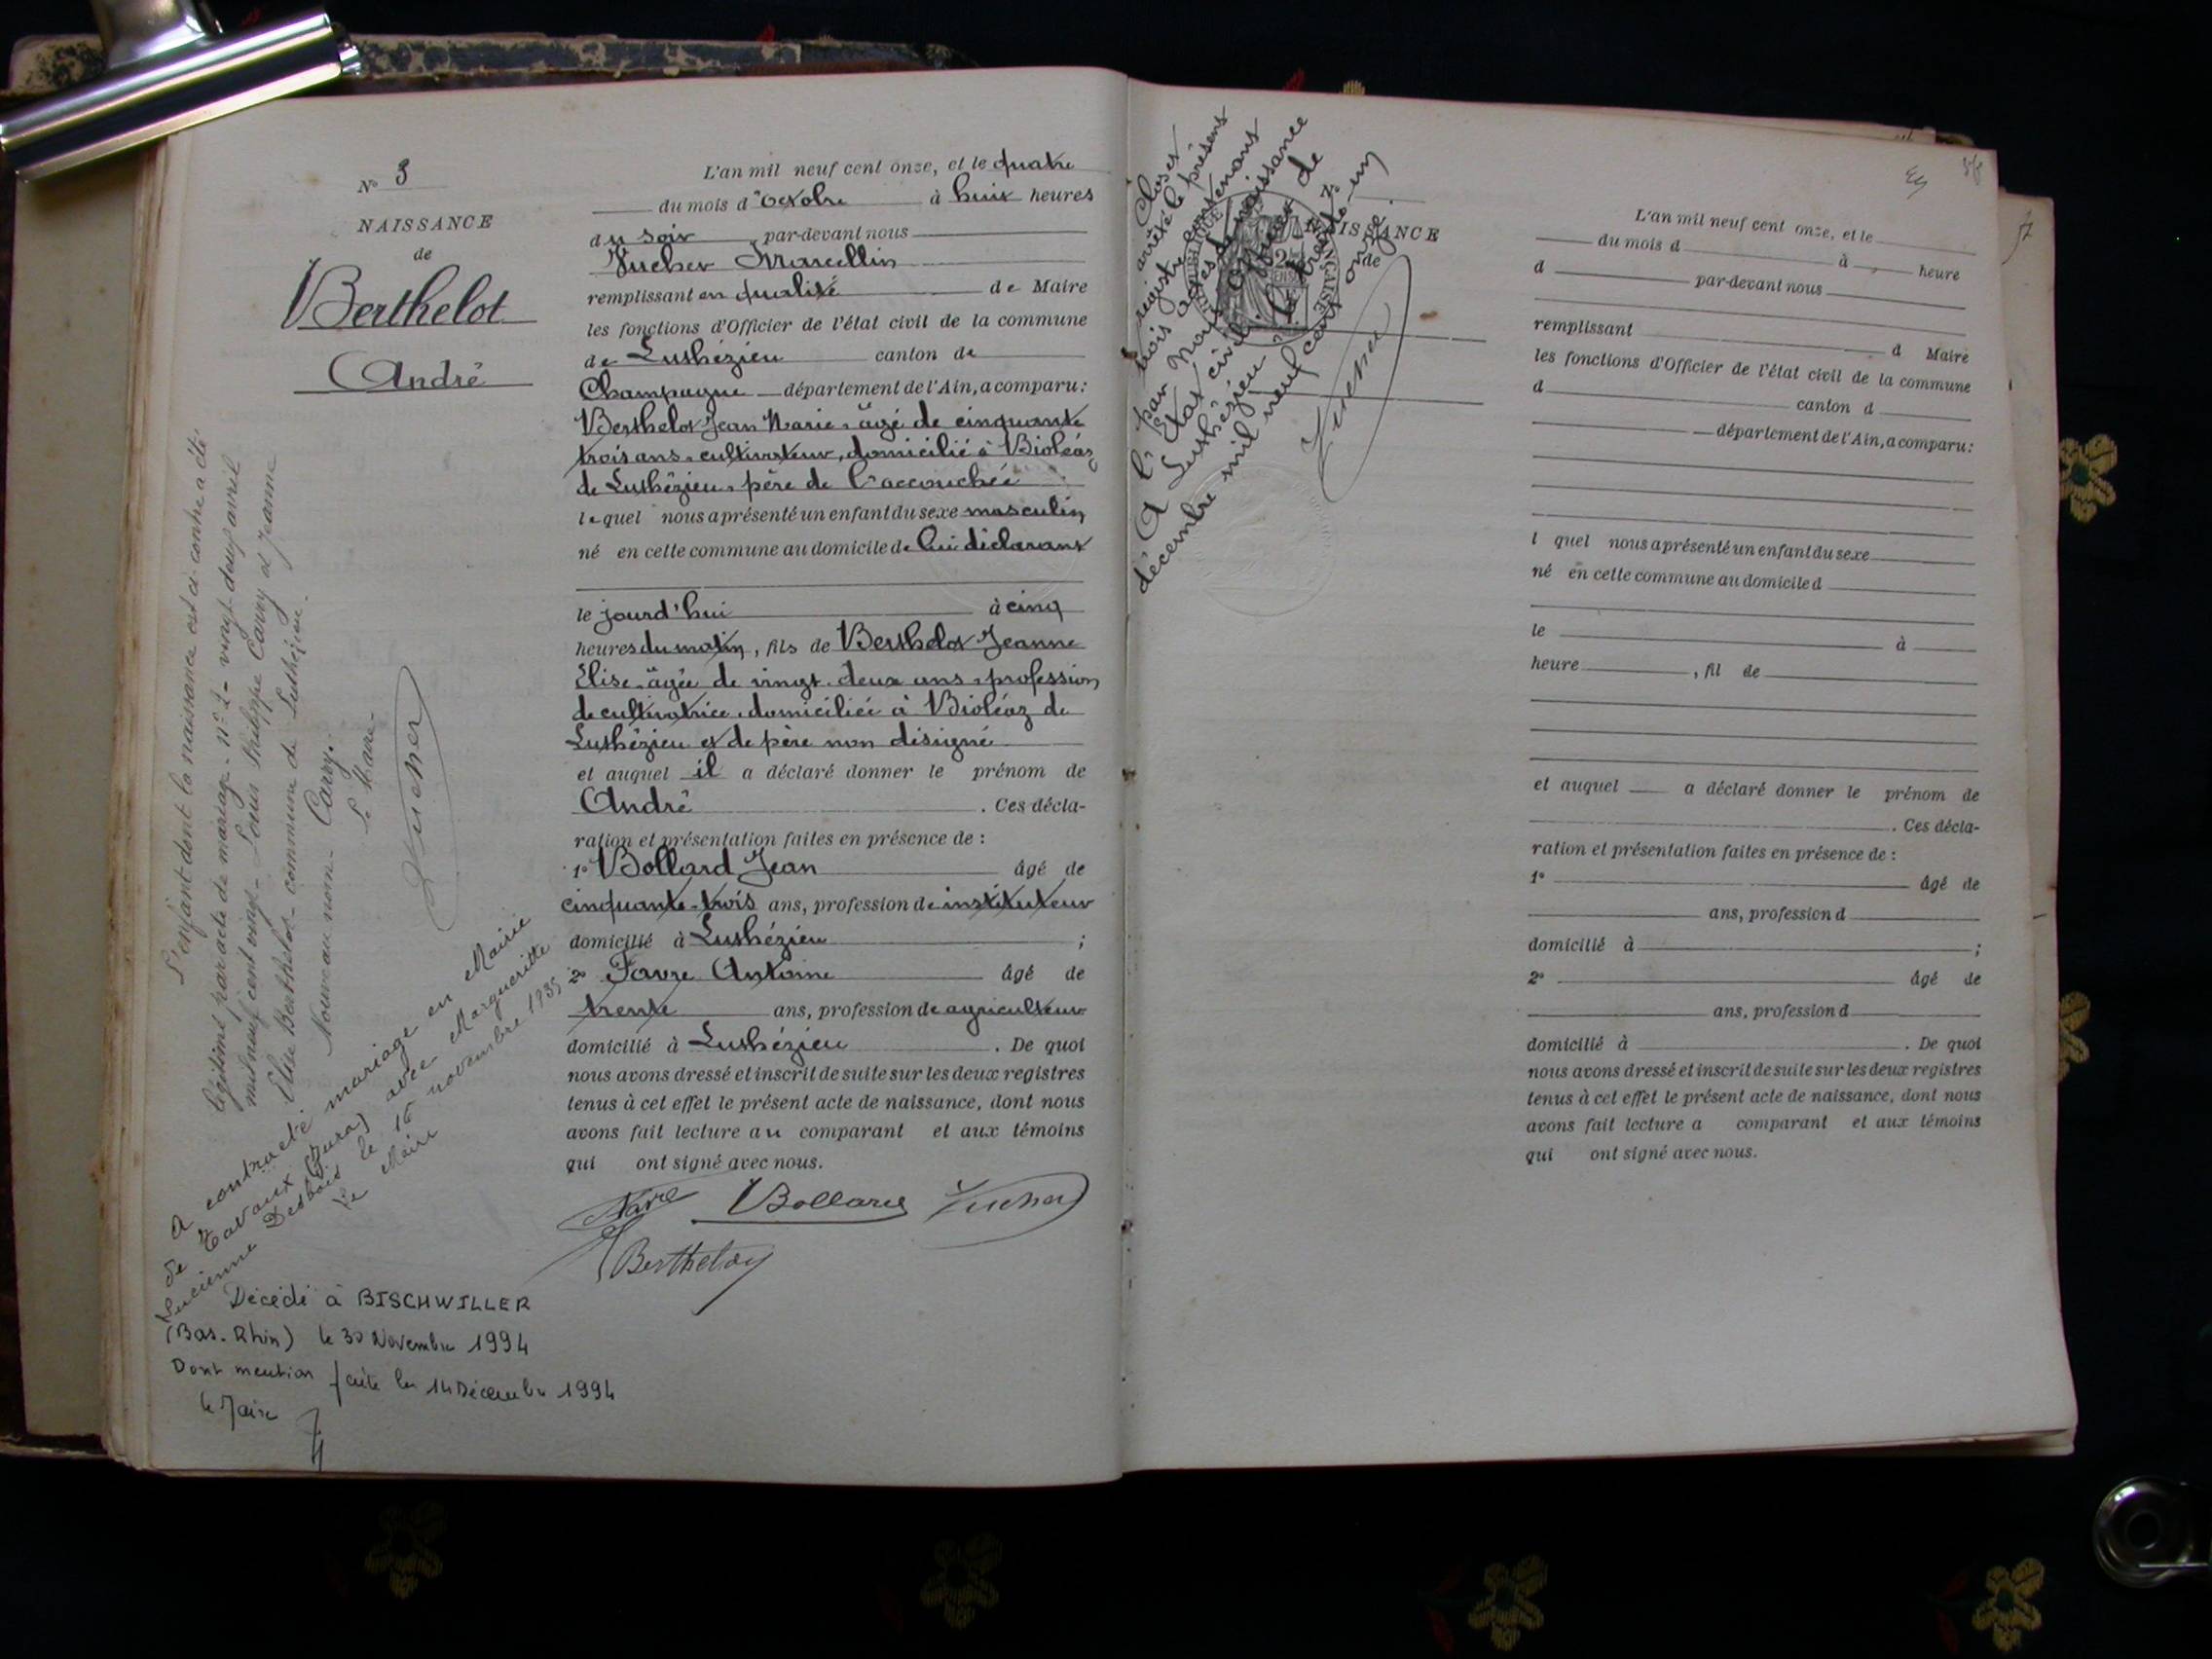 N° 3
NAISSANCE
de
Berthelot
André
L'an mil neuf cent onze, et le quatre
du mois d'Octobre à huit heures
du soir par-devant nous
Vucher Marcellin
remplissant en qualité de Maire
les fonctions d'Officier de l'état civil de la commune
de Luthézieu canton de
Champagne département de l'Ain, a comparu :
Berthelot Jean Marie, âgé de cinquante
trois ans, cultivateur, domicilié à Bioléaz
de Luthézieu, père de l'accouchée
lequel nous a présenté un enfant du sexe masculin
né en cette commune au domicile de lui déclarant
le jourd'hui à cinq
heures du matin, fils de Berthelot Jeanne
Elise, âgée de vingt-deux ans, profession
de cultivatrice, domiciliée à Bioléaz de
Luthézieu et de père non désigné
et auquel il a déclaré donner le prénom de
André . Ces décla-
ration et présentation faites en présence de :
1° Bollard Jean âgé de
cinquante-trois ans, profession de instituteur
domicilié à Luthézieu ;
2° Favre Antoine âgé de
trente ans, profession de agriculteur
domicilié à Luthézieu . De quoi
nous avons dressé et inscrit de suite sur les deux registres
tenus à cet effet le présent acte de naissance, dont nous
avons fait lecture au comparant et aux témoins
qui ont signé avec nous.
Favre Bollard Vucher
Berthelot
L'enfant dont la naissance est ci-contre a été
légitimé par acte de mariage n° 2 - vingt-deux avril
mil neuf cent vingt - Louis Philippe Carry et Jeanne
Elise Berthelot - commune de Luthézieu.
Nouveau nom - Carry.
Le Maire -
Vucher
A contracté mariage en Mairie
de Tavaux (Jura) avec Marguerite
Lucienne Desbois le 16 novembre 1935
Le Maire
Décédé à BISCHWILLER
(Bas-Rhin) le 30 Novembre 1994
Dont mention faite le 14 Décembre 1994
le Maire
Clos et
arrêté le présent
registre contenant
trois actes de naissance
par Nous Officier de
l'Etat civil
A Luthézieu le trente-un
décembre mil neuf cent onze.
Vucher
N°
NAISSANCE
de
L'an mil neuf cent onze, et le
du mois d à heure
d par-devant nous
remplissant d Maire
les fonctions d'Officier de l'état civil de la commune
d canton d
département de l'Ain, a comparu :
l quel nous a présenté un enfant du sexe
né en cette commune au domicile d
le à
heure , fil de
et auquel a déclaré donner le prénom de
. Ces décla-
ration et présentation faites en présence de :
1° âgé de
ans, profession d
domicilié à ;
2° âgé de
ans, profession d
domicilié à . De quoi
nous avons dressé et inscrit de suite sur les deux registres
tenus à cet effet le présent acte de naissance, dont nous
avons fait lecture a comparant et aux témoins
qui ont signé avec nous.